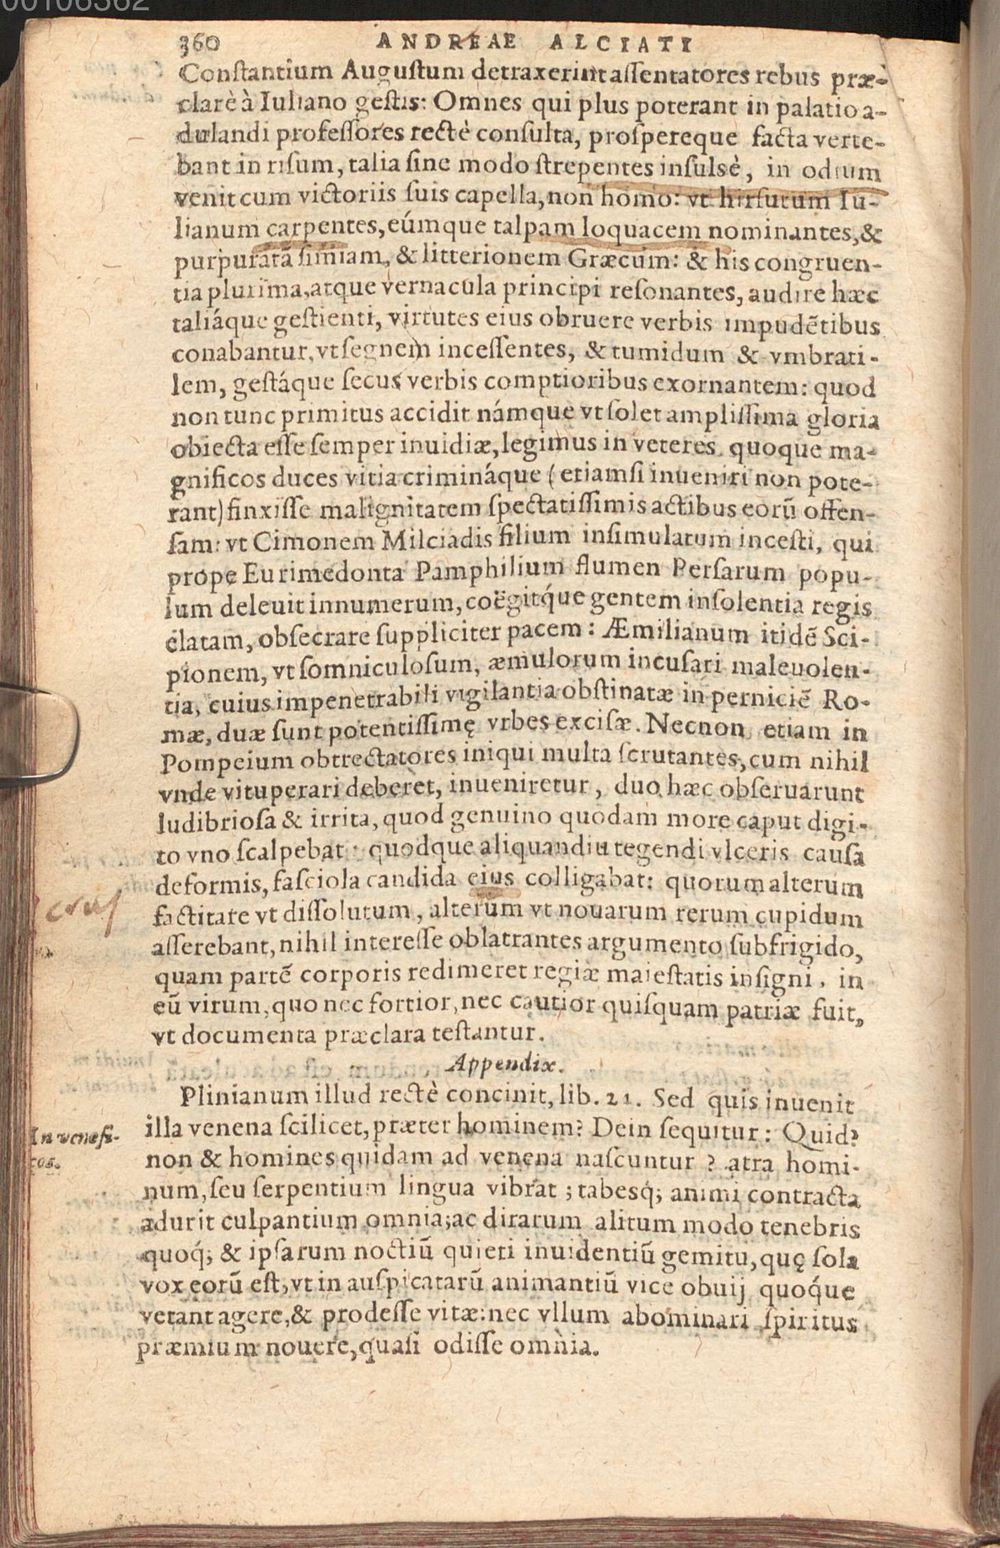 00106362
360 ANDREAE ALCIATI
Conſtantium Auguſtum detraxerint aſſentatores rebus præ-
clarè à Iuliano geſtis: Omnes qui plus poterant in palatio a-
dulandi profeſſores rectè conſulta, proſpereque facta verte-
bant in riſum, talia ſine modo ſtrepentes inſulsè, in odium
venit cum victoriis ſuis capella, non homo: vt hirſutum Iu-
lianum carpentes, eúmque talpam loquacem nominantes, &
purpuratā ſimiam, & litterionem Græcum: & his congruen-
tia plurima, atque vernacula principi reſonantes, audire hæc
taliáque geſtienti, virtutes eius obruere verbis impudētibus
conabantur, vt ſegnem inceſſentes, & tumidum & vmbrati-
lem, geſtáque ſecus verbis comptioribus exornantem: quod
non tunc primitus accidit námque vt ſolet ampliſſima gloria
obiecta eſſe ſemper inuidiæ, legimus in veteres quoque ma-
gnificos duces vitia crimináque (etiamſi inueniri non pote-
rant) finxiſſe malignitatem ſpectatiſſimis actibus eorū offen-
ſam: vt Cimonem Milciadis filium inſimulatum inceſti, qui
prope Eurimedonta Pamphilium flumen Perſarum popu-
lum deleuit innumerum, coëgitq́ue gentem inſolentia regis
elatam, obſecrare ſuppliciter pacem: Æmilianum itidē Sci-
pionem, vt ſomniculoſum, æmulorum incuſari maleuolen-
tia, cuius impenetrabili vigilantia obſtinatæ in perniciē Ro-
mæ, duæ ſunt potentiſſimę vrbes exciſæ. Necnon etiam in
Pompeium obtrectatores iniqui multa ſcrutantes, cum nihil
vnde vituperari deberet, inueniretur, duo hæc obſeruarunt
ludibrioſa & irrita, quod genuino quodam more caput digi-
to vno ſcalpebat: quodque aliquandiu tegendi vlceris cauſa
deformis, faſciola candida eius colligabat: quorum alterum
crus
factitare vt diſſolutum, alterum vt nouarum rerum cupidum
aſſerebant, nihil intereſſe oblatrantes argumento ſubfrigido,
quam partē corporis redimeret regiæ maieſtatis inſigni, in
eū virum, quo nec fortior, nec cautior quiſquam patriæ fuit,
vt documenta præclara teſtantur.
Appendix.
Plinianum illud rectè concinit, lib. 21. Sed quis inuenit
In venefi-
illa venena ſcilicet, præter hominem? Dein ſequitur: Quid?
cos.
non & homines quidam ad venena naſcuntur? atra homi-
num, ſeu ſerpentium lingua vibrat; tabesq́; animi contracta
adurit culpantium omnia; ac dirarum alitum modo tenebris
quoq́; & ipſarum noctiū quieti inuidentiū gemitu, quę ſola
vox eorū eſt, vt in auſpicatarū animantiū vice obuij quoq́ue
vetant agere, & prodeſſe vitæ: nec vllum abominari ſpiritus
præmium nouere, quaſi odiſſe omnia.